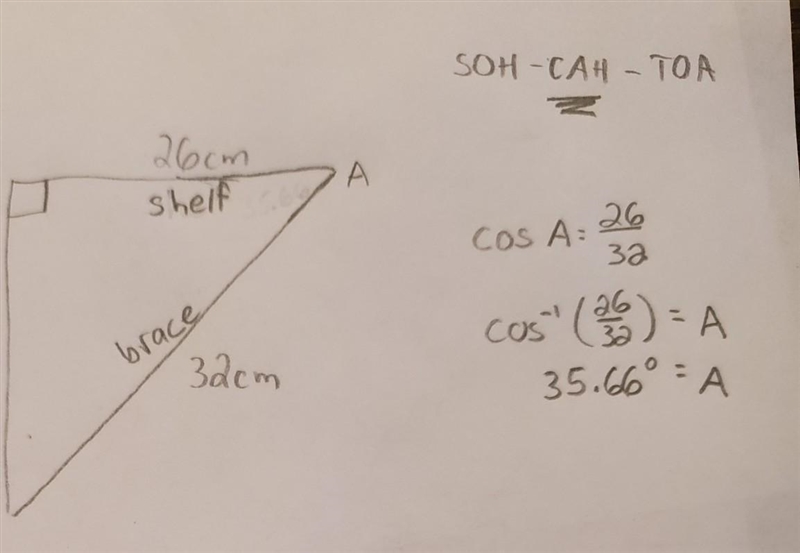 SOH - CAH - TOA
26cm
shelf
A
brace
32cm
cos A = 26/32
cos⁻¹ (26/32) = A
35.66° = A